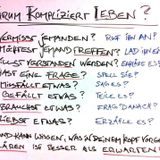 WARUM KOMPLIZIERT LEBEN?
VERMISST JEMANDEN? → RUF IHN AN!
MÖCHTEST JEMAND TREFFEN? → LAD IHN EIN!
WILLST VERSTANDEN WERDEN? → ERKLÄRE ES!
HAST EINE FRAGE? → STELL SIE!
MISSFÄLLT ETWAS? → SAG ES!
GEFÄLLT ETWAS? → TEILE ES!
BRAUCHST ETWAS? → FRAG DANACH!
LIEBST ETWAS?
KANN WISSEN, WAS IN DEINEM KOPF
KLÄREN IST BESSER ALS ERWARTEN!